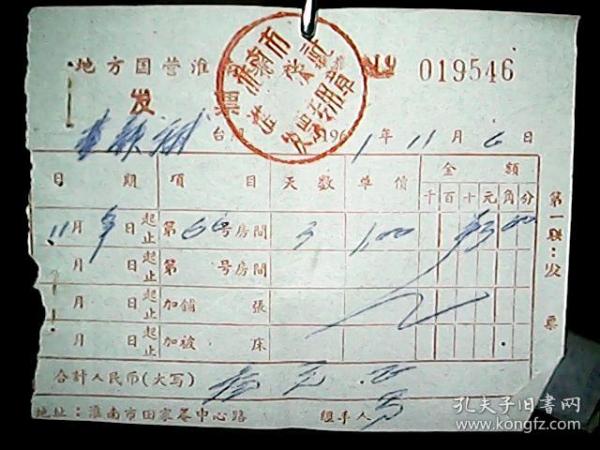 地方国营淮
019546
发
台 1961年11月6日
日期 項目 天数 单價 金額
千百十元角分
11月 日起止 第66号房間 3 1.00 ¥3 00
月 日起止 第 号房間
月 日起止 加鋪 張
月 日起止 加被 床
合計人民币(大写) 叁元正
地址：淮南市田家菴中心路 經手人
第一聯：发票
淮南市
发票专用章
孔夫子旧书网
www.kongfz.com